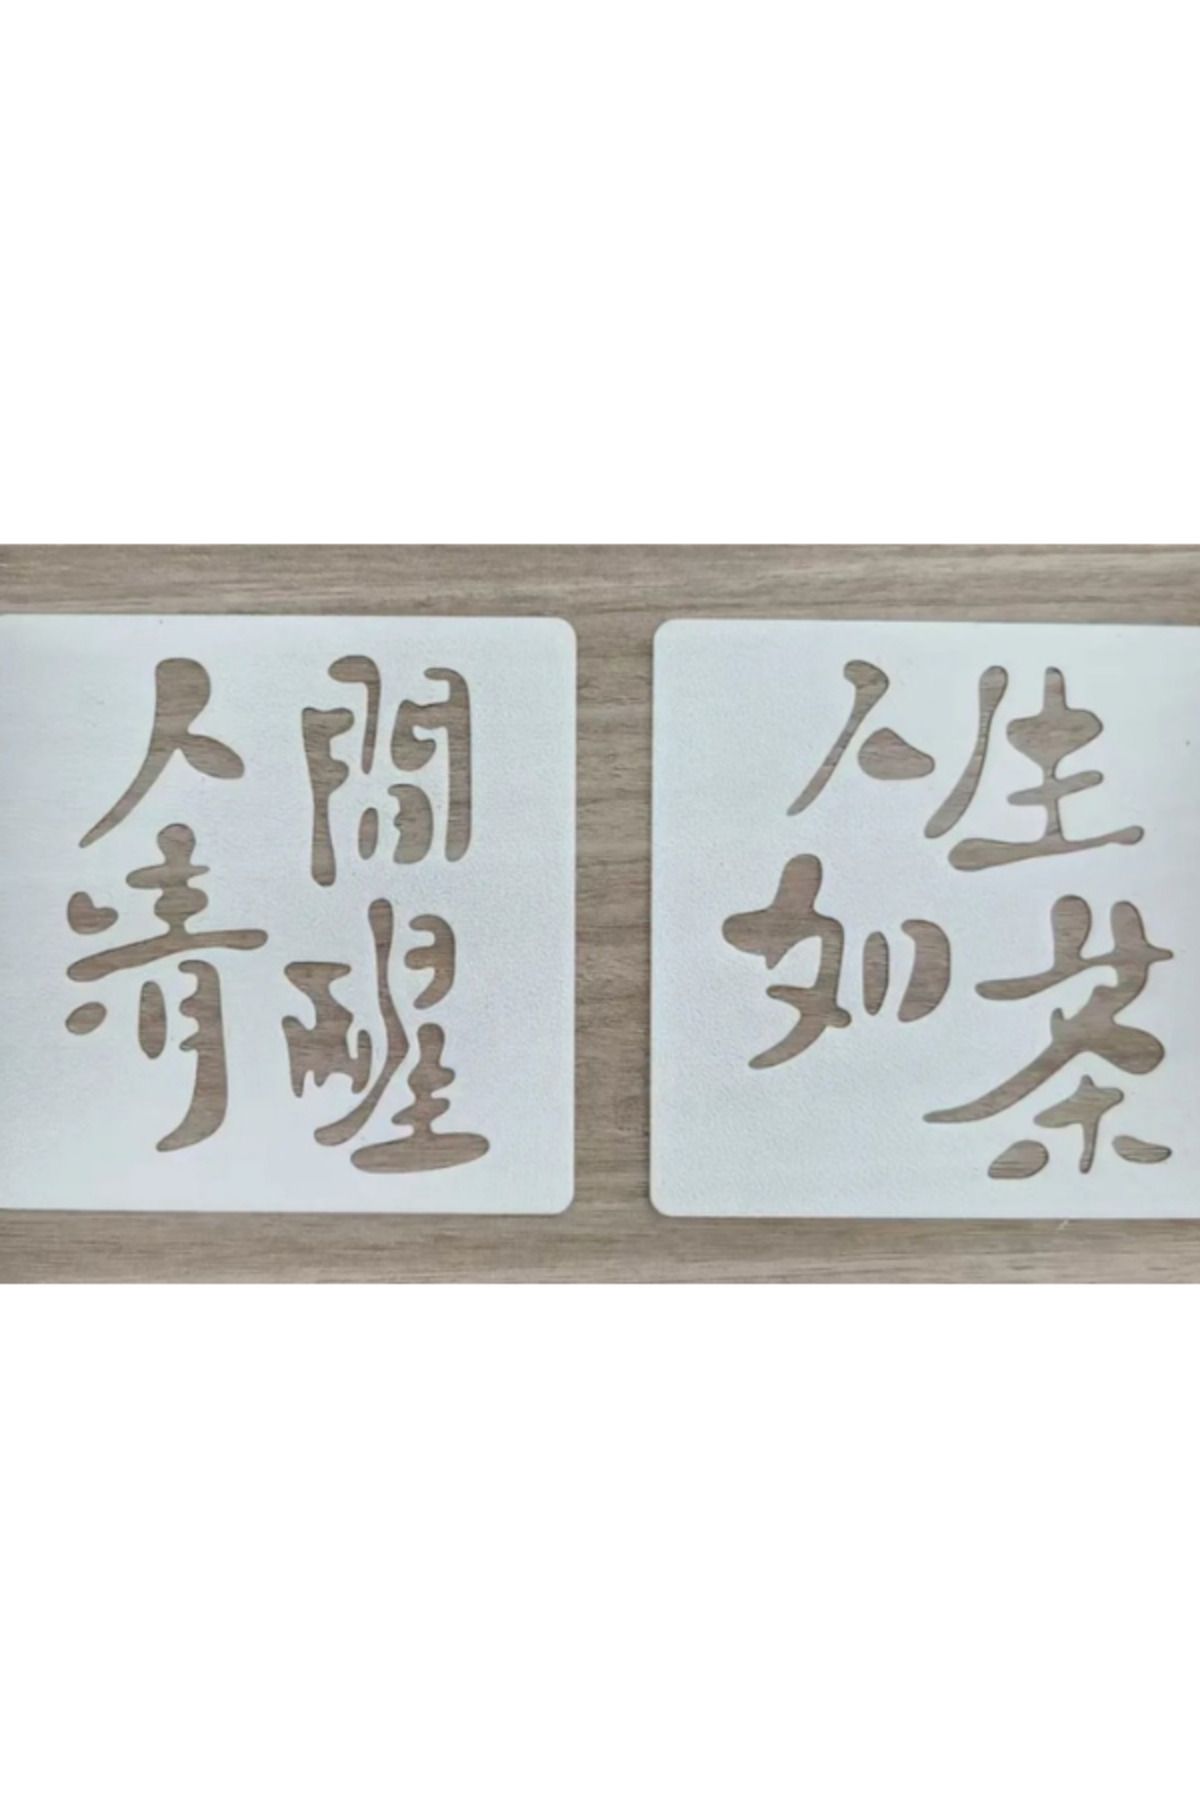 人間
清醒
人生
如茶